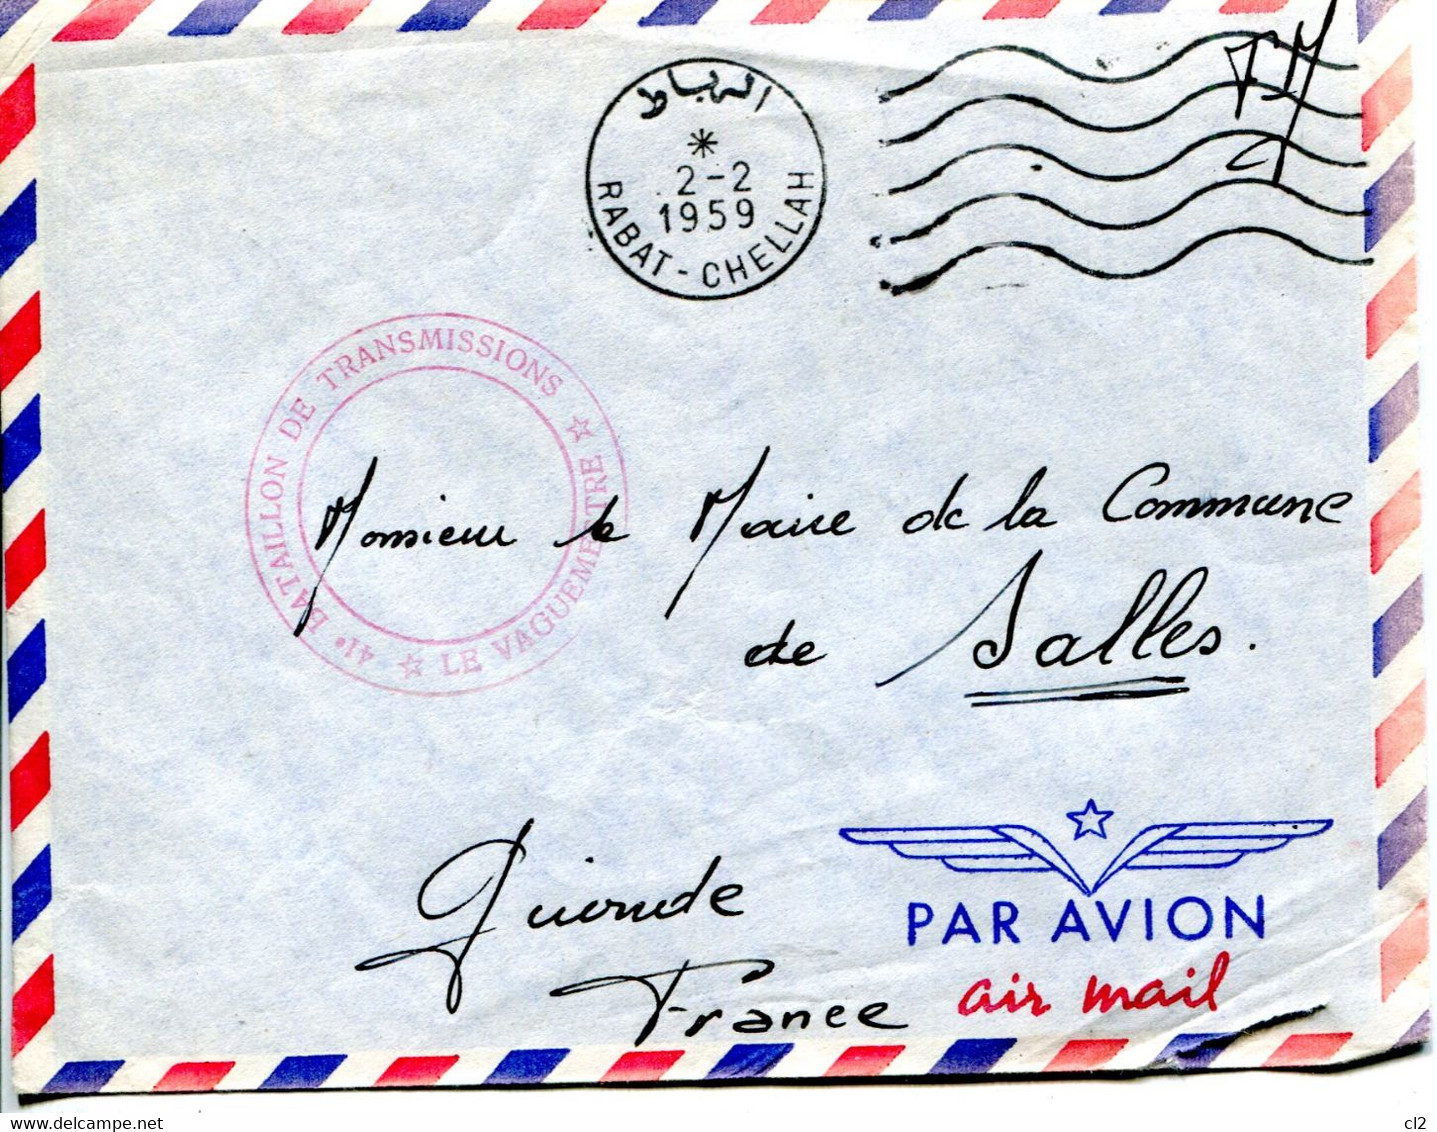 الرباط
2-2
1959
RABAT-CHELLAH
FM
41e BATAILLON DE TRANSMISSIONS
LE VAGUEMESTRE
Monsieur le Maire de la Commune
de Salles.
Gironde
France
PAR AVION
air mail
cl2